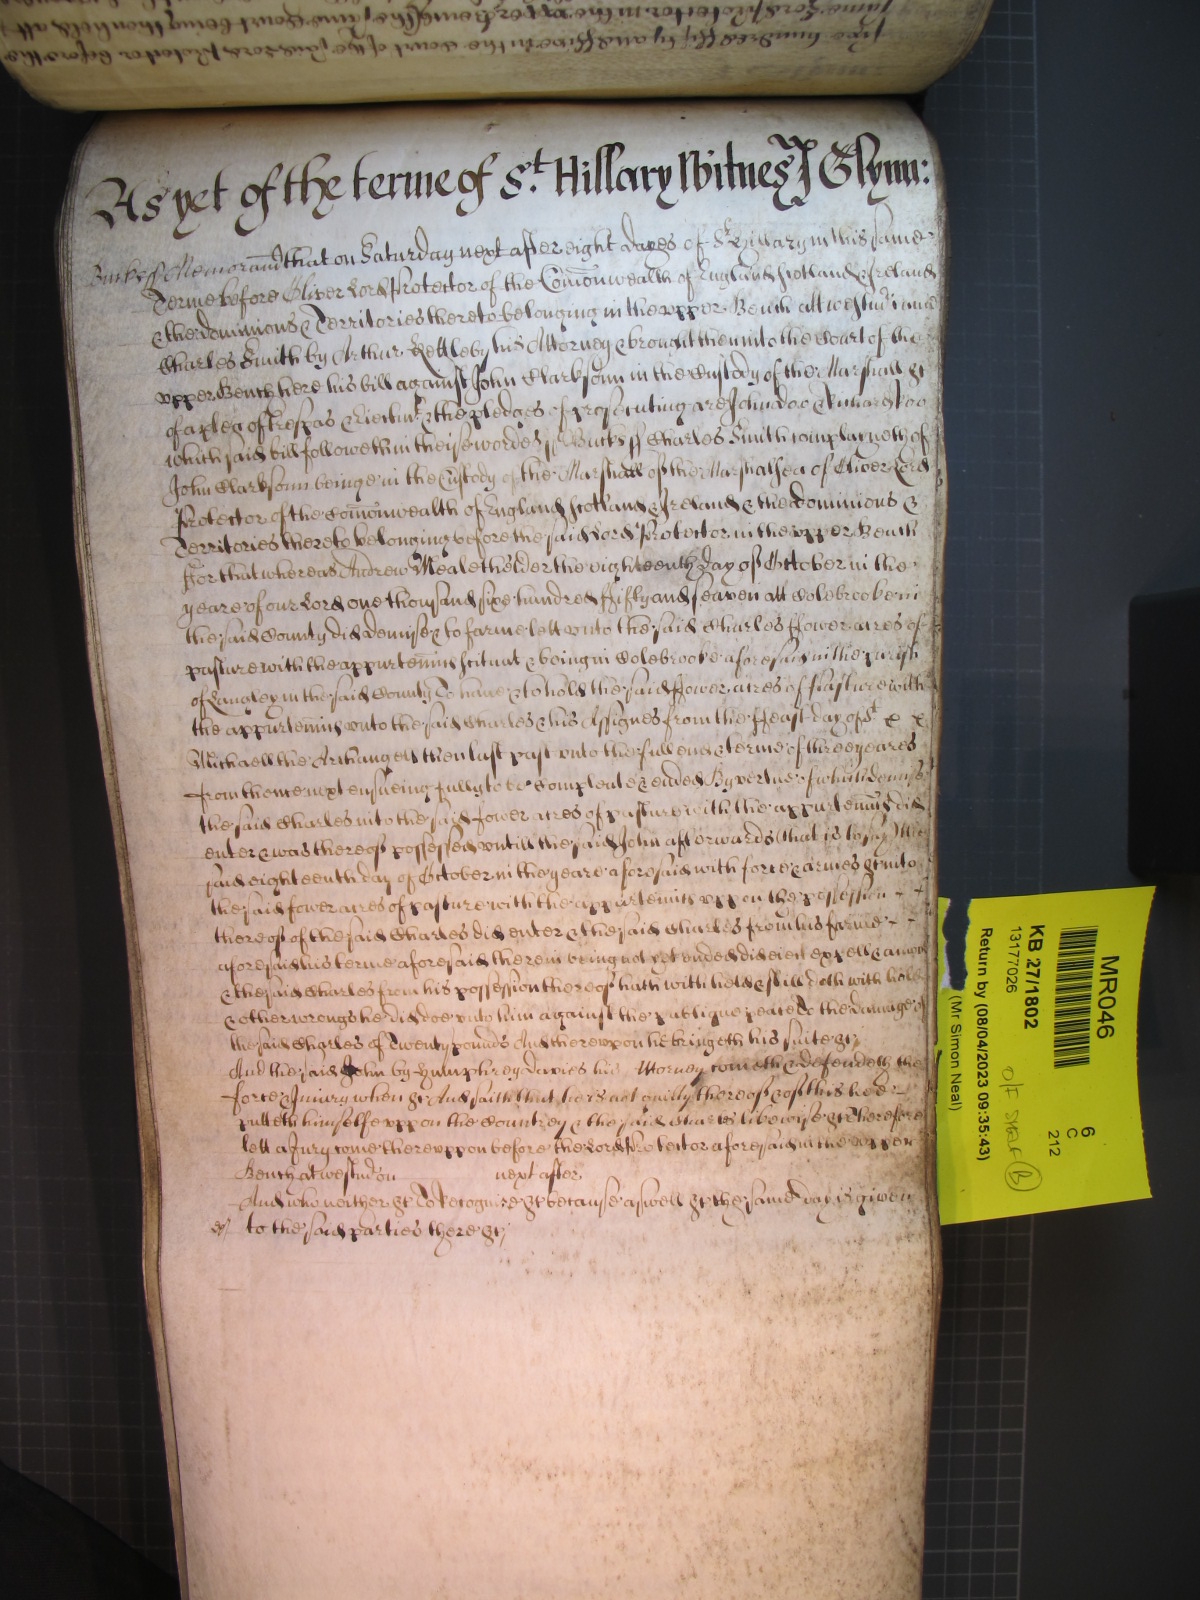 As yet of the terme of St. Hillary Witnes J Glynn:
Bucks ss Memorand that on Saturday next after eight dayes of St Hillary in this same
Terme before Oliver Lord Protector of the Comonwealth of England Scotland & Ireland
& the dominions & Territories thereto belonging in the upper Bench att Westmr came
Charles Smith by Arthur Kettleby his Attorney & brought then into the Court of the
upper Bench here his bill against John Clarksonn in the Custody of the Marshall &c
of a plea of trespas & Eiectmt & the pledges of prosecuting are John doo & Richard roo
which said bill followeth in theise wordes ss Bucks ss Charles Smith complayneth of
John Clarksonn beinge in the Custody of the Marshall of the Marshalsea of Oliver Lord
Protector of the Comonwealth of England Scotland & Ireland & the dominions &
Territories thereto belonging before the said Lord Protector in the upper Bench
ffor that whereas Andrew Meale the elder the eighteenth day of October in the
yeare of our Lord one thousand sixe hundred ffifty and seaven att Colebrooke in
the said County did demise & to farme lett unto the said Charles ffower acres of
pasture with the appurtennts scituat & being in Colebrooke aforesaid in the parish
of Langley in the said County To have & to hold the said ffower acres of pasture with
the appurtennts unto the said Charles & his Assignes from the ffeast day of St x x
Michaell the Archangell then last past unto the full end & terme of three yeares
from thence next ensueing fully to be Compleate & ended By vertue of which demise
the said Charles into the said fower acres of pasture with the appurtennts did
enter & was thereof possessed untill the said John afterwards (that is to say) the
said eighteenth day of October in the yeare aforesaid with force & armes &c into
the said fower acres of pasture with the appurtennts uppon the possession
thereof of the said Charles did enter & the said Charles from his farme
aforesaid his terme aforesaid therein being not yet ended did eiect expell & amove
& the said Charles from his possession thereof hath with held & still doth with hold
& other wrongs he did doe unto him against the publique peace To the damage of
the said Charles of Twenty pounds And thereuppon he bringeth his suite &c
And the said John by Humphrey Davies his Attorney cometh & defendeth the
force & iniury when &c And saith that he is not guilty thereof & of this hee
putteth himselfe uppon the Countrey & the said Charles likewise &c Therefore
lett a Jury come thereuppon before the Lord Protector aforesaid in the upper
Bench at Westmr on next after
And who neither &c To recognize &c because aswell &c the same day is given
to the said parties there &c
MR046
KB 27/1802
13177026
Return by (08/04/2023 09:35:43)
(Mr Simon Neal)
6
C
212